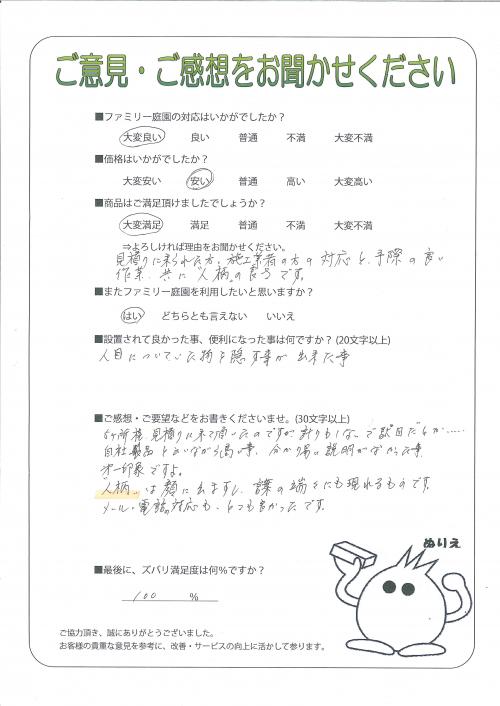 ご意見・ご感想をお聞かせください
■ファミリー庭園の対応はいかがでしたか?
大変良い 良い 普通 不満 大変不満
■価格はいかがでしたか?
大変安い 安い 普通 高い 大変高い
■商品はご満足頂けましたでしょうか?
大変満足 満足 普通 不満 大変不満
⇒よろしければ理由をお聞かせください。
見積りに来られた方、施工業者の方の対応と、手際の良い
作業、共に"人柄"の良さです。
■またファミリー庭園を利用したいと思いますか?
はい どちらとも言えない いいえ
■設置されて良かった事、便利になった事は何ですか?(20文字以上)
人目についていた物を隠す事が出来た事
■ご感想・ご要望などをお書きくださいませ。(30文字以上)
5ヶ所程見積りに来て頂いたのですが計りもしないで"駄目だ"とか……
自社製品と言いながら高い事、分かり易い説明がなかった事
オ一印象ですよ。
"人柄"は顔に出ますし、言葉の端々にも現れるものです。
メール・電話の対応も、とても良かったです。
ぬりえ
■最後に、ズバリ満足度は何%ですか?
100 %
ご協力頂き、誠にありがとうございました。
お客様の貴重な意見を参考に、改善・サービスの向上に活かして参ります。